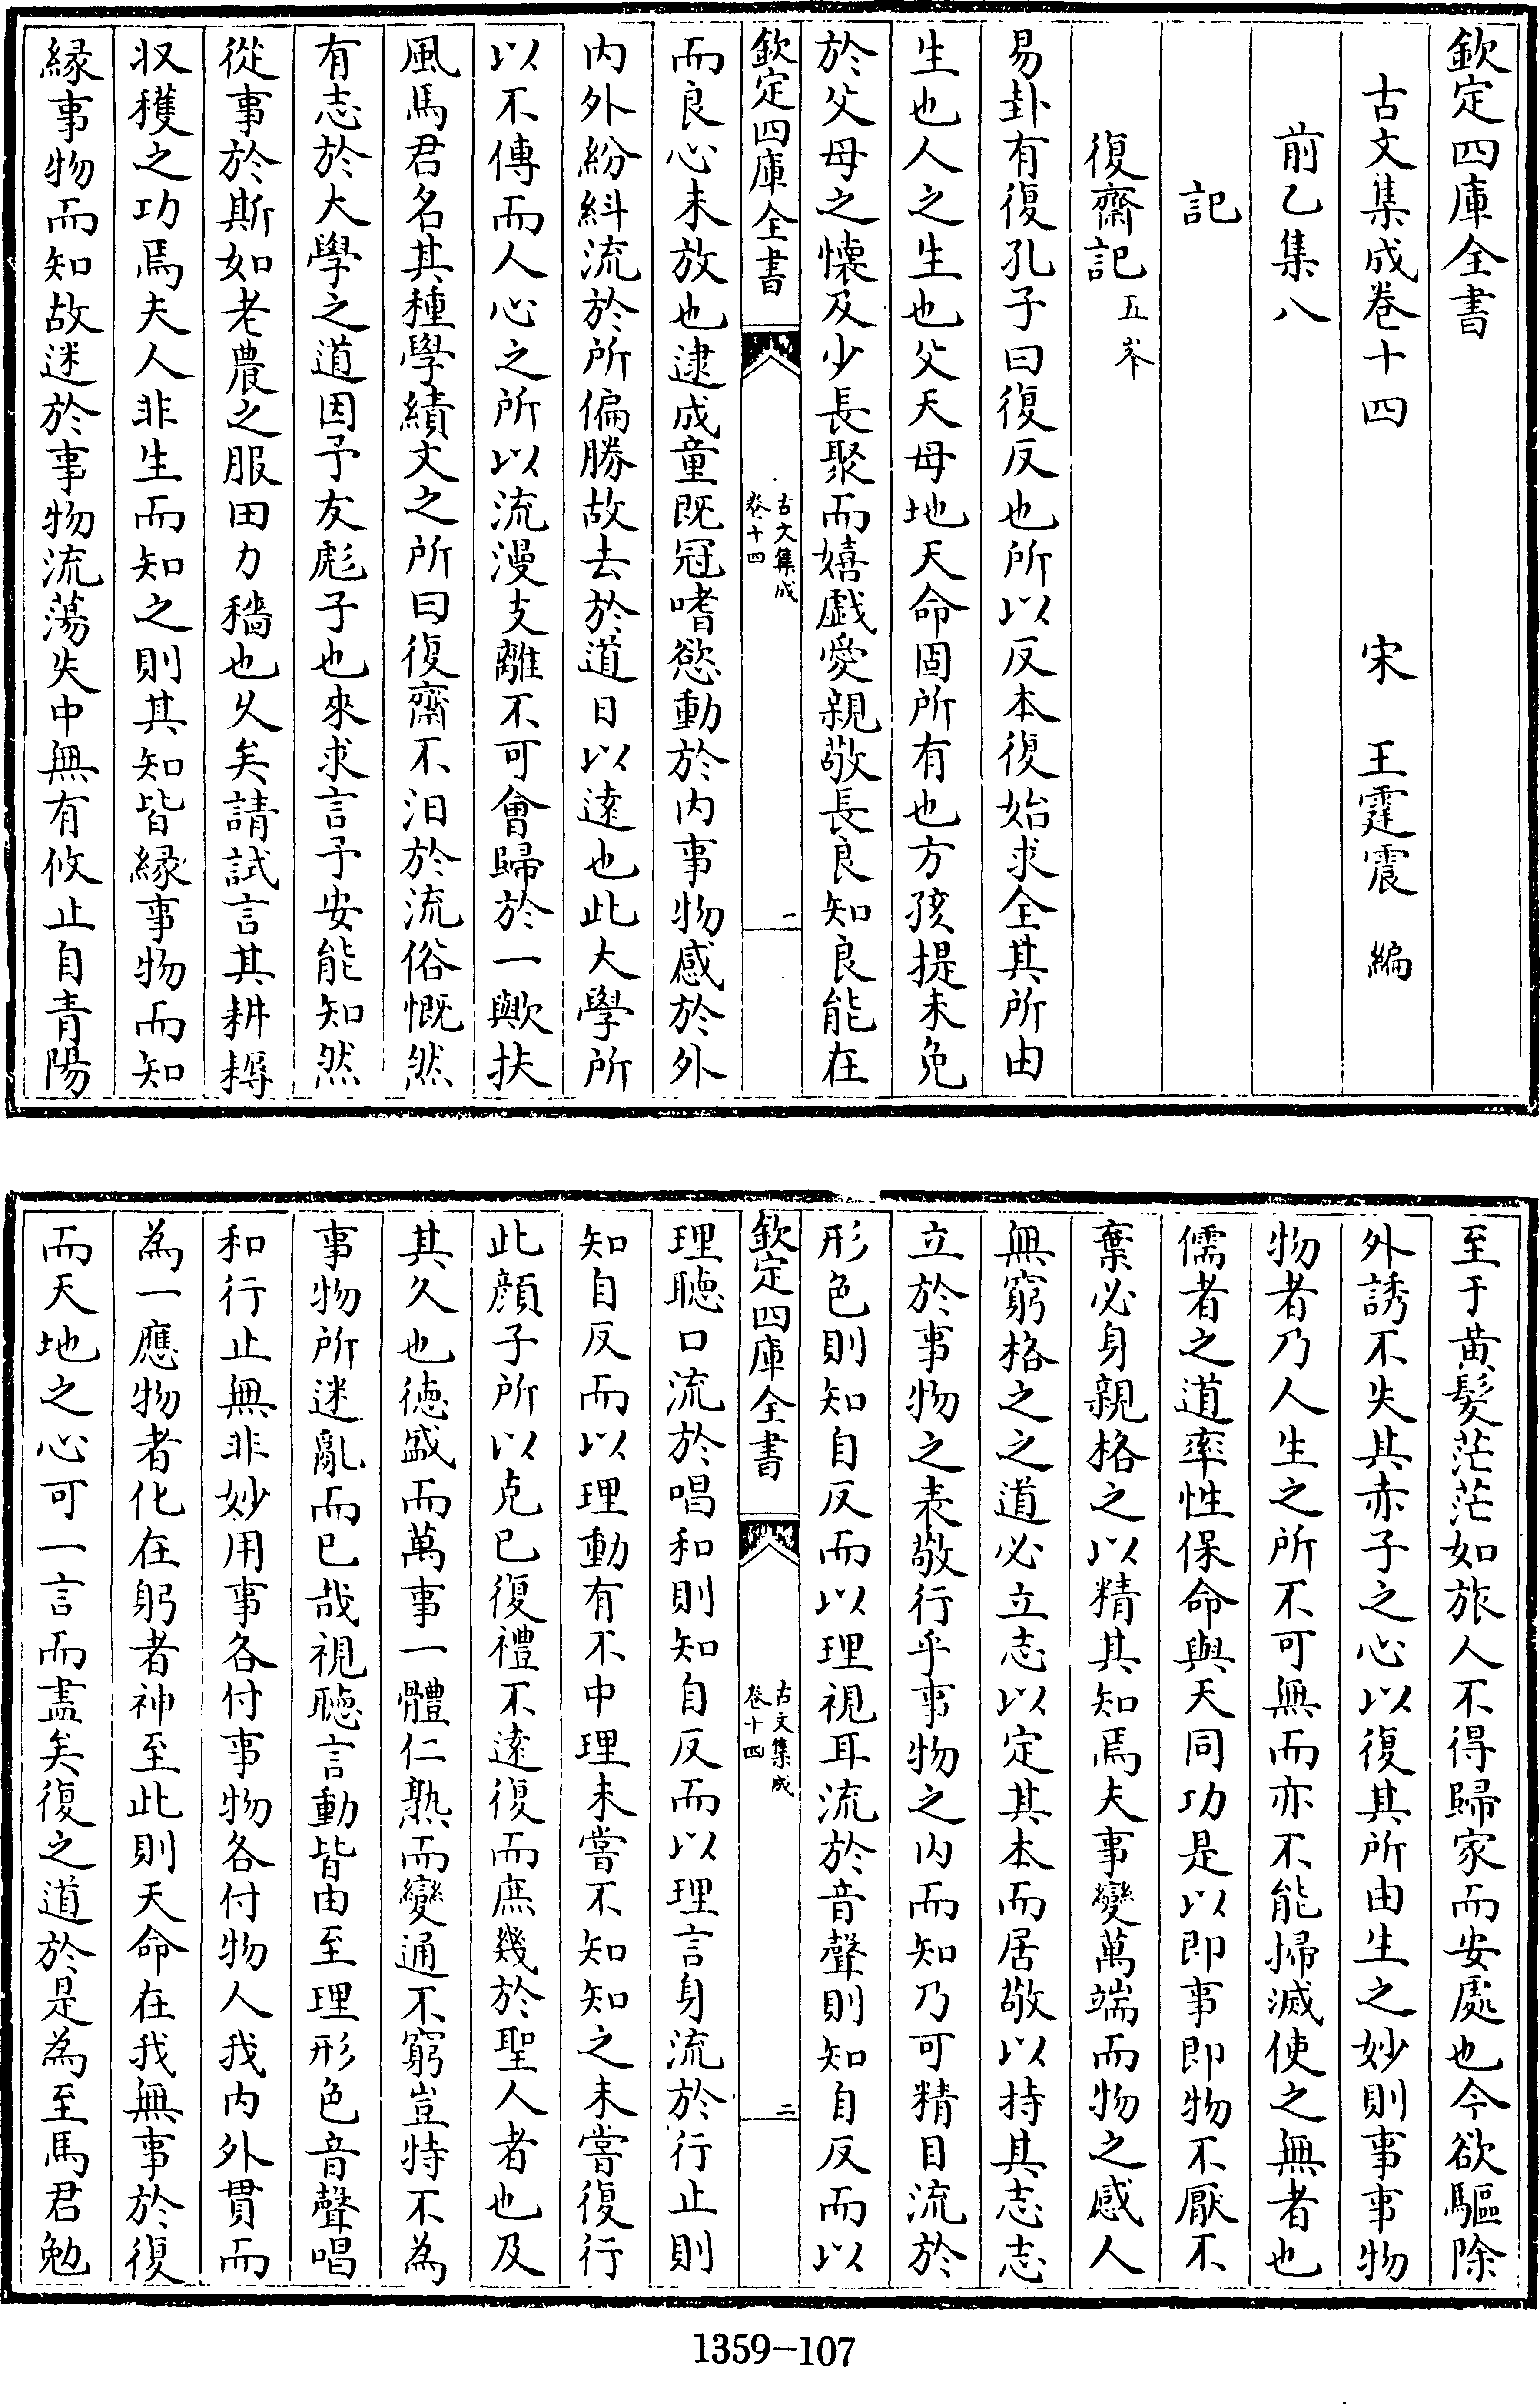 欽定四庫全書
古文集成卷十四　宋　王霆震　編
前乙集八
記
復齋記 五峯
易卦有復孔子曰復反也所以反本復始求全其所由
生也人之生也父天母地天命固所有也方孩提未免
於父母之懷及少長聚而嬉戱愛親敬長良知良能在
欽定四庫全書　古文集成卷十四　一
而良心未放也逮成童既冠嗜慾動於内事物感於外
内外紛紏流於所偏勝故去於道日以逺也此大學所
以不傳而人心之所以流漫支離不可會歸於一歟扶
風馬君名其種學績文之所曰復齋不汨於流俗慨然
有志於大學之道因予友彪子也來求言予安能知然
從事於斯如老農之服田力穡也乆矣請試言其耕耨
収穫之功焉夫人非生而知之則其知皆縁事物而知
縁事物而知故迷於事物流蕩失中無有攸止自青陽
至于黄髮茫茫如旅人不得歸家而安處也今欲驅除
外誘不失其赤子之心以復其所由生之妙則事事物
物者乃人生之所不可無而亦不能掃滅使之無者也
儒者之道率性保命與天同功是以即事即物不厭不
棄必身親格之以精其知焉夫事變萬端而物之感人
無窮格之之道必立志以定其本而居敬以持其志志
立於事物之表敬行乎事物之内而知乃可精目流於
形色則知自反而以理視耳流於音聲則知自反而以
欽定四庫全書　古文集成卷十四　二
理聽口流於唱和則知自反而以理言身流於行止則
知自反而以理動有不中理未嘗不知知之未嘗復行
此顔子所以克已復禮不逺復而庶幾於聖人者也及
其久也徳盛而萬事一體仁熟而變通不窮豈特不為
事物所迷亂而已哉視聽言動皆由至理形色音聲唱
和行止無非妙用事各付事物各付物人我内外貫而
為一應物者化在躬者神至此則天命在我無事於復
而天地之心可一言而盡矣復之道於是為至馬君勉
1359-107